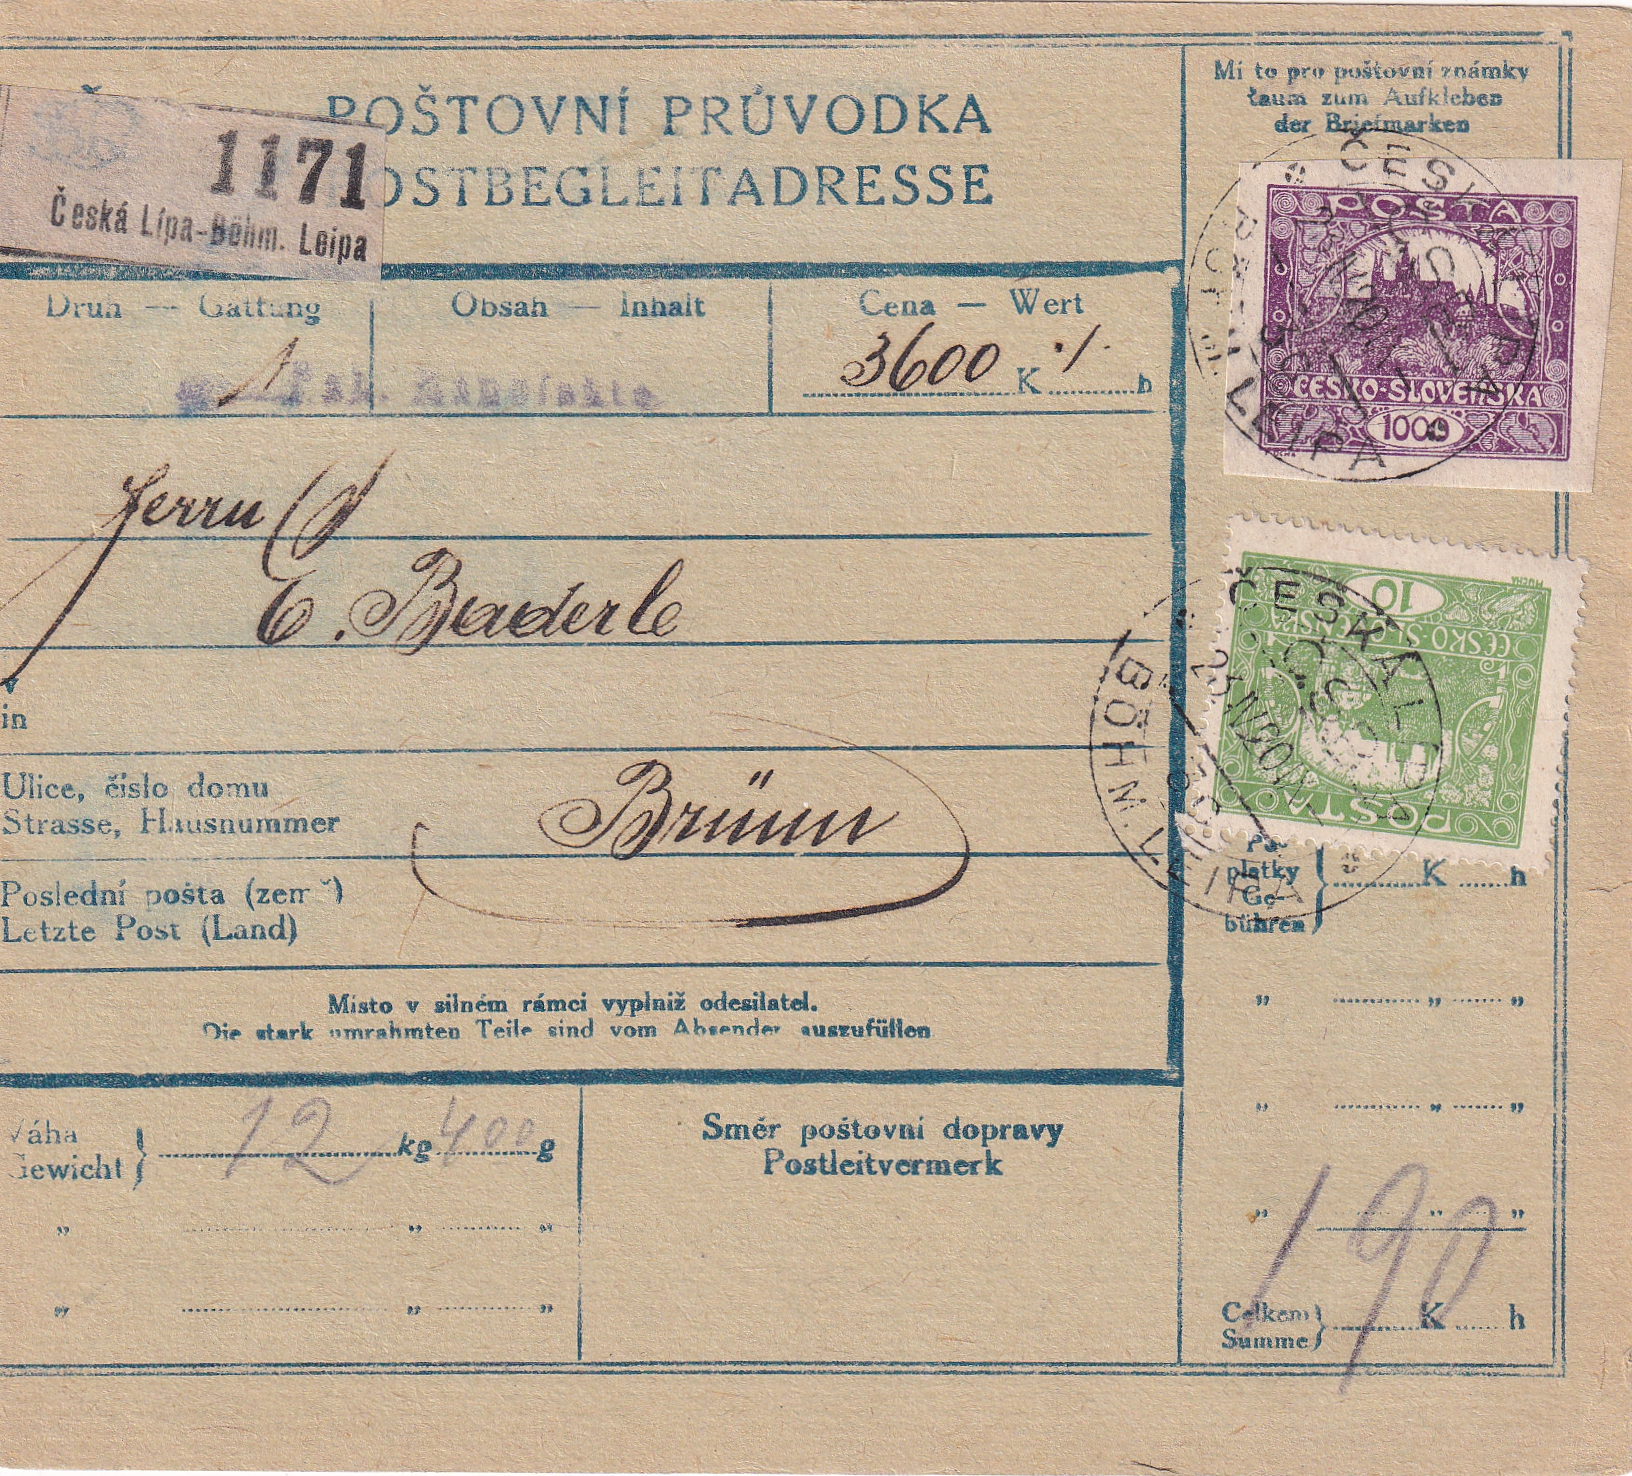 POŠTOVNÍ PRŮVODKA
OSTBEGLEITADRESSE
1171
Česká Lípa-Böhm. Leipa
Mí to pro poštovní známky
Raum zum Aufkleben
der Briefmarken
POŠTA
ČESKO-SLOVENSKA
1000
ČESKÁ LÍPA
BÖHM. LEIPA
Druh — Gattung
Obsah — Inhalt
Cena — Wert
1
3600 K ·/· h
Herrn
C. Baderle
v
in
Ulice, číslo domu
Strasse, Hausnummer
Brünn
Poslední pošta (země)
Letzte Post (Land)
Místo v silném rámci vyplniž odesilatel.
Die stark umrahmten Teile sind vom Absender auszufüllen
10
ČESKO-SLOVENSKA
POŠTA
ČESKÁ LÍPA
BÖHM. LEIPA
Po-
platky
Ge-
bühren
K h
" " "
" " "
" " "
Váha
Gewicht
12 kg 400 g
" " "
" " "
Směr poštovní dopravy
Postleitvermerk
190
Celkem
Summe
K h